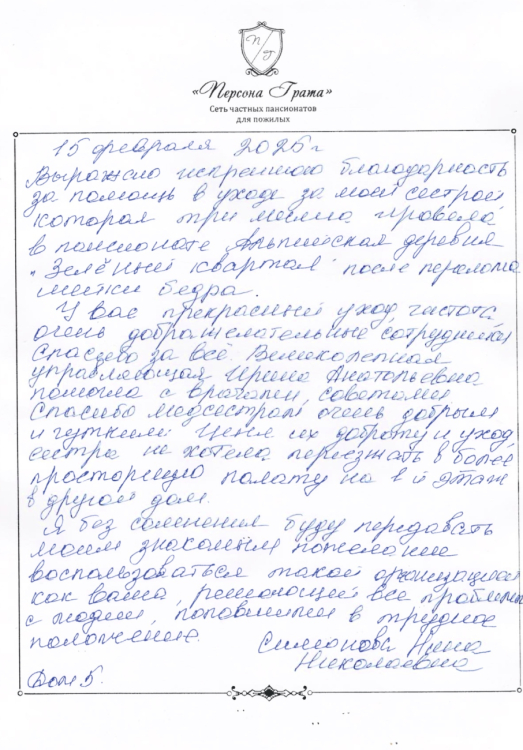 П/Г
«Персона Грата»
Сеть частных пансионатов
для пожилых
15 февраля 2026 г
Выражаю искреннюю благодарность
за помощь в уходе за моей сестрой
которая три месяца провела
в пансионате Альпийская деревня
"Зелёный квартал" после перелома
шейки бедра.
У вас прекрасный уход, чистота
очень доброжелательные сотрудники
Спасибо за всё. Великолепная
управляющая Ирина Анатольевна
помогла с врачами, советами
Спасибо медсестрам очень добрым
и чутким. Ценя их доброту и уход,
сестра не хотела переезжать в более
просторную палату на 1й этаж
в другой дом.
Я без сомнения буду передавать
моим знакомым пожелание
воспользоваться такой организацией
как ваша, решающей все проблемы
с людьми, попавшими в трудное
положение.
Симонова Нина
Николаевна
Дом 5.